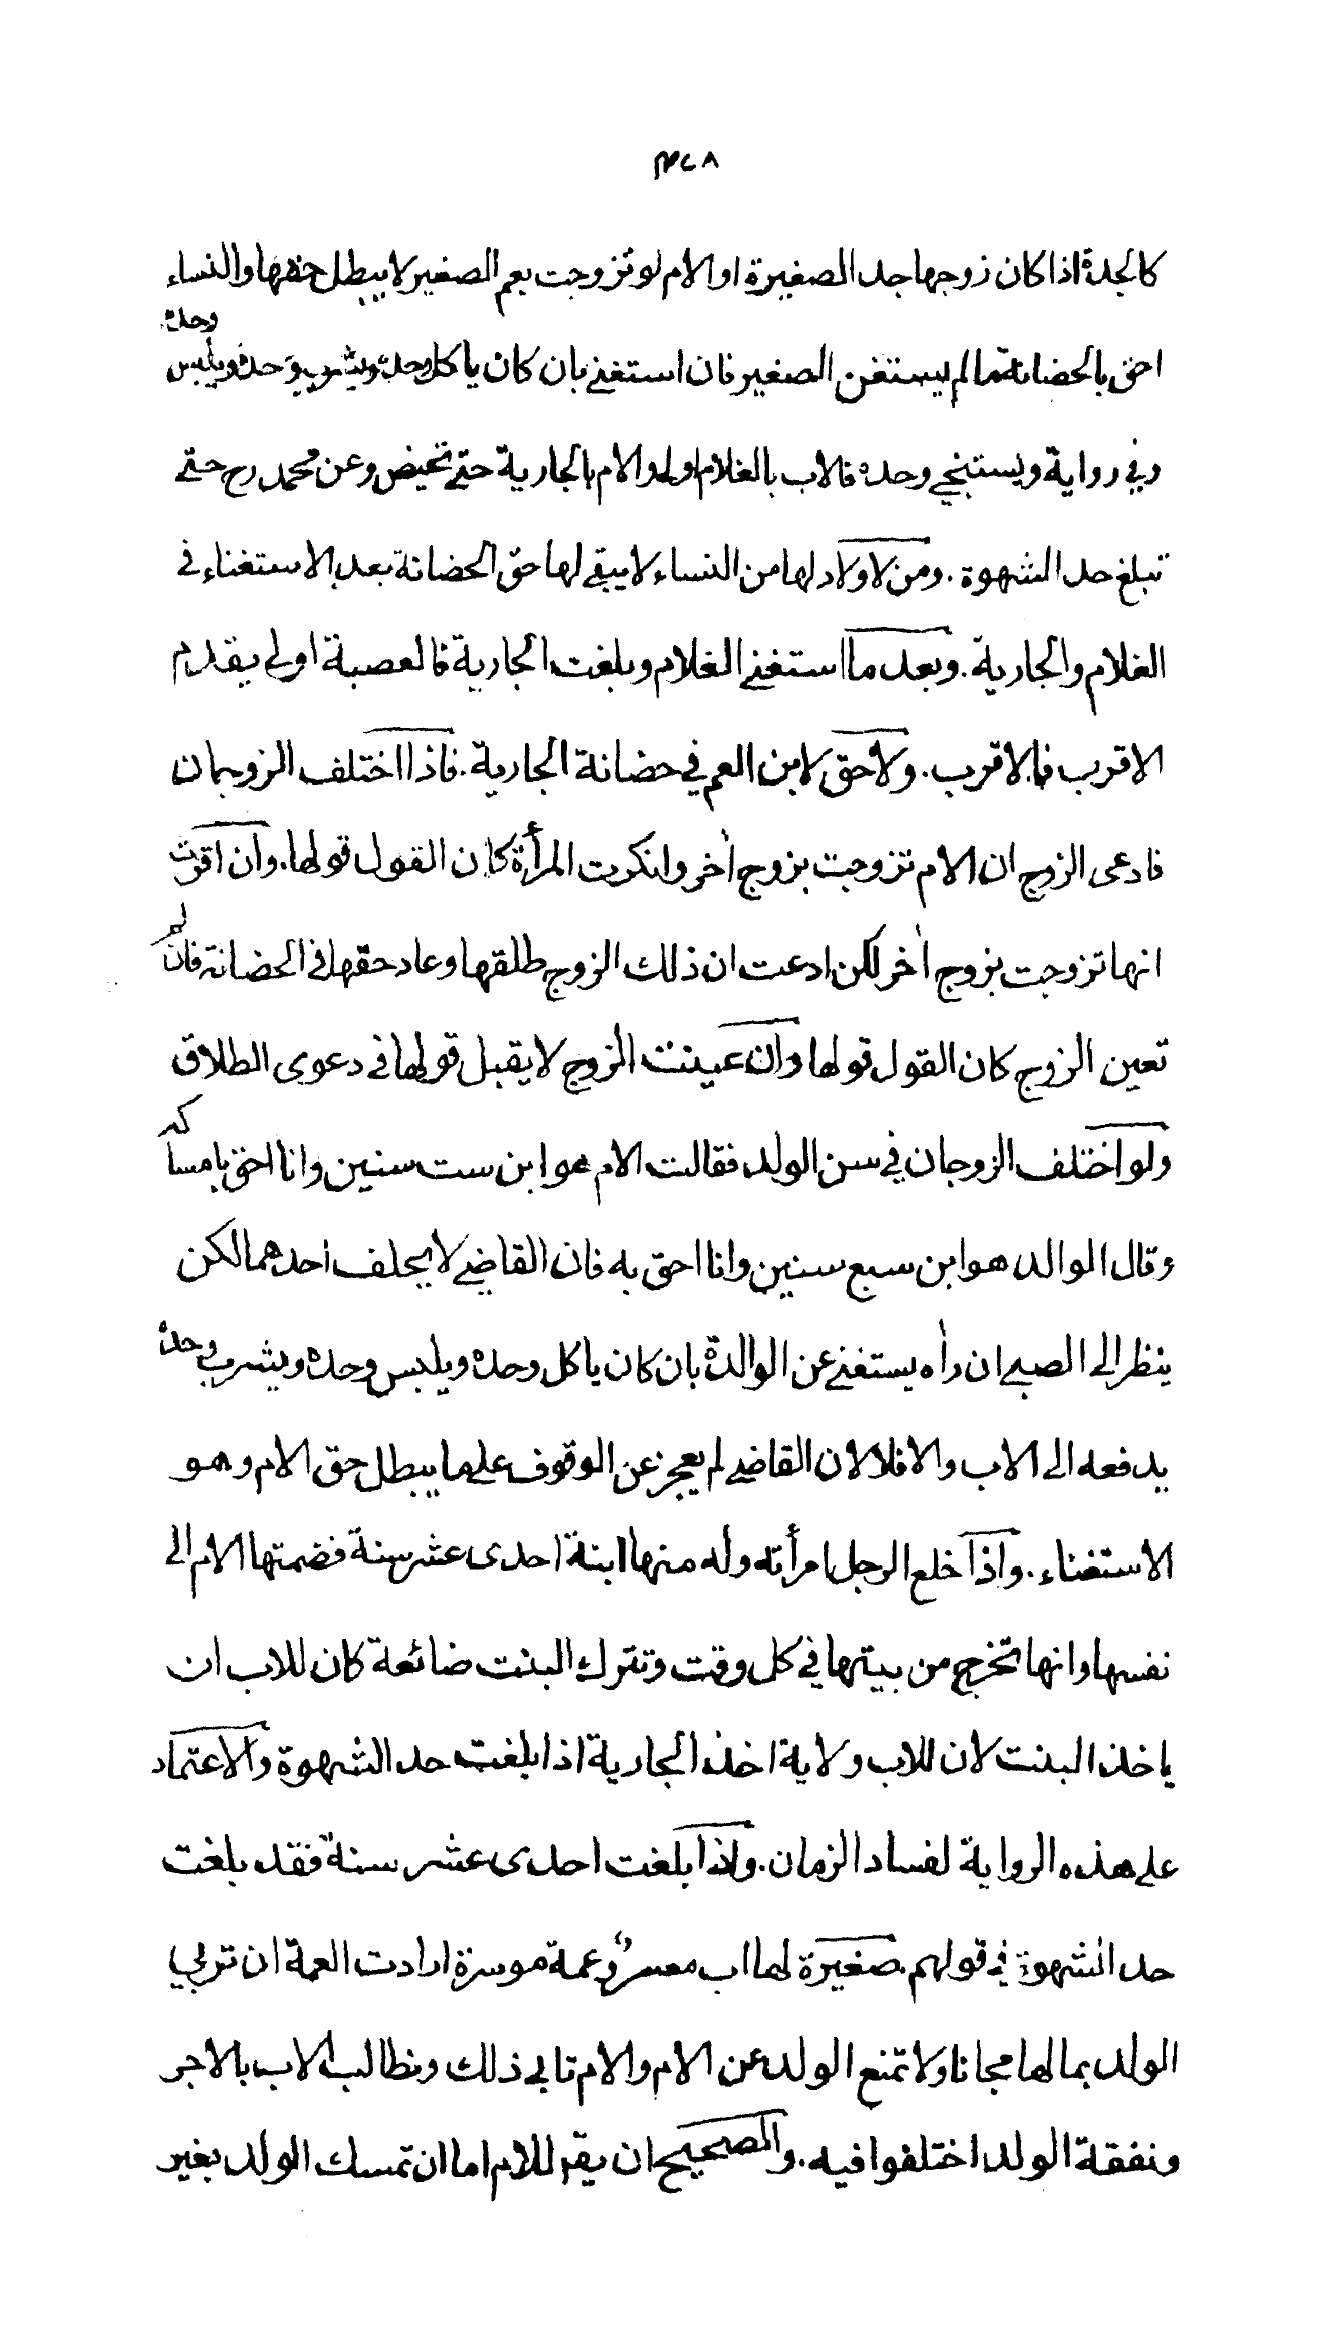 كالجدة اذا كان زوجها جد الصغيرة او الام لو تزوجت بعم الصغير لا يبطل حقها والنساء
احق بالحضانة ما لم يستغن الصغير فان استغنى بان كان ياكل وحده ويشرب وحده ويلبس وحده
وفى رواية ويستنجى وحده فالاب بالغلام اولى والام بالجارية حتى تحيض وعن محمد رح حتى
تبلغ حد الشهوة . ومن لا ولاد لها من النساء لا يبقى لها حق الحضانة بعد الاستغناء فى
الغلام والجارية . وبعد ما استغنى الغلام وبلغت الجارية فالعصبة اولى يقدم
الاقرب فالاقرب . ولا حق لابن العم في حضانة الجارية . فاذا اختلف الزوجان
فادعى الزوج ان الام تزوجت بزوج أخر وانكرت المرأة كان القول قولها . وان اقرت
انها تزوجت بزوج أخر لكن ادعت ان ذلك الزوج طلقها وعاد حقها فى الحضانة فان لم
تعين الزوج كان القول قولها وان عينت الزوج لا يقبل قولها فى دعوى الطلاق
ولو اختلف الزوجان في سن الولد فقالت الام هو ابن ست سنين وانا احق بامساكه
وقال الوالد هو ابن سبع سنين وانا احق به فان القاضى لا يحلف احدهما لكن
ينظر الى الصبى ان رأه يستغنى عن الوالدة بان كان ياكل وحده ويلبس وحده ويشرب وحده
يدفعه الى الاب والا فلا لان القاضى لم يعجز عن الوقوف على ما يبطل حق الام وهو
الاستغناء . واذا خلع الرجل امرأته وله منها ابنة احدى عشر سنة فضمتها الام الى
نفسها وانها تخرج من بيتها في كل وقت وتترك البنت ضائعة كان للاب ان
ياخذ البنت لان للاب ولاية اخذ الجارية اذا بلغت حد الشهوة والاعتماد
على هذه الرواية لفساد الزمان . واذا بلغت احدى عشر سنة فقد بلغت
حد الشهوة في قولهم . صغيرة لها اب معسر وعمة موسرة ارادت العمة ان تربي
الولد بمالها مجانا ولا تمنع الولد عن الام والام تابى ذلك وتطالب الاب بالاجر
ونفقة الولد اختلفوا فيه . والصحيح ان يقر للام اما ان تمسك الولد بغير